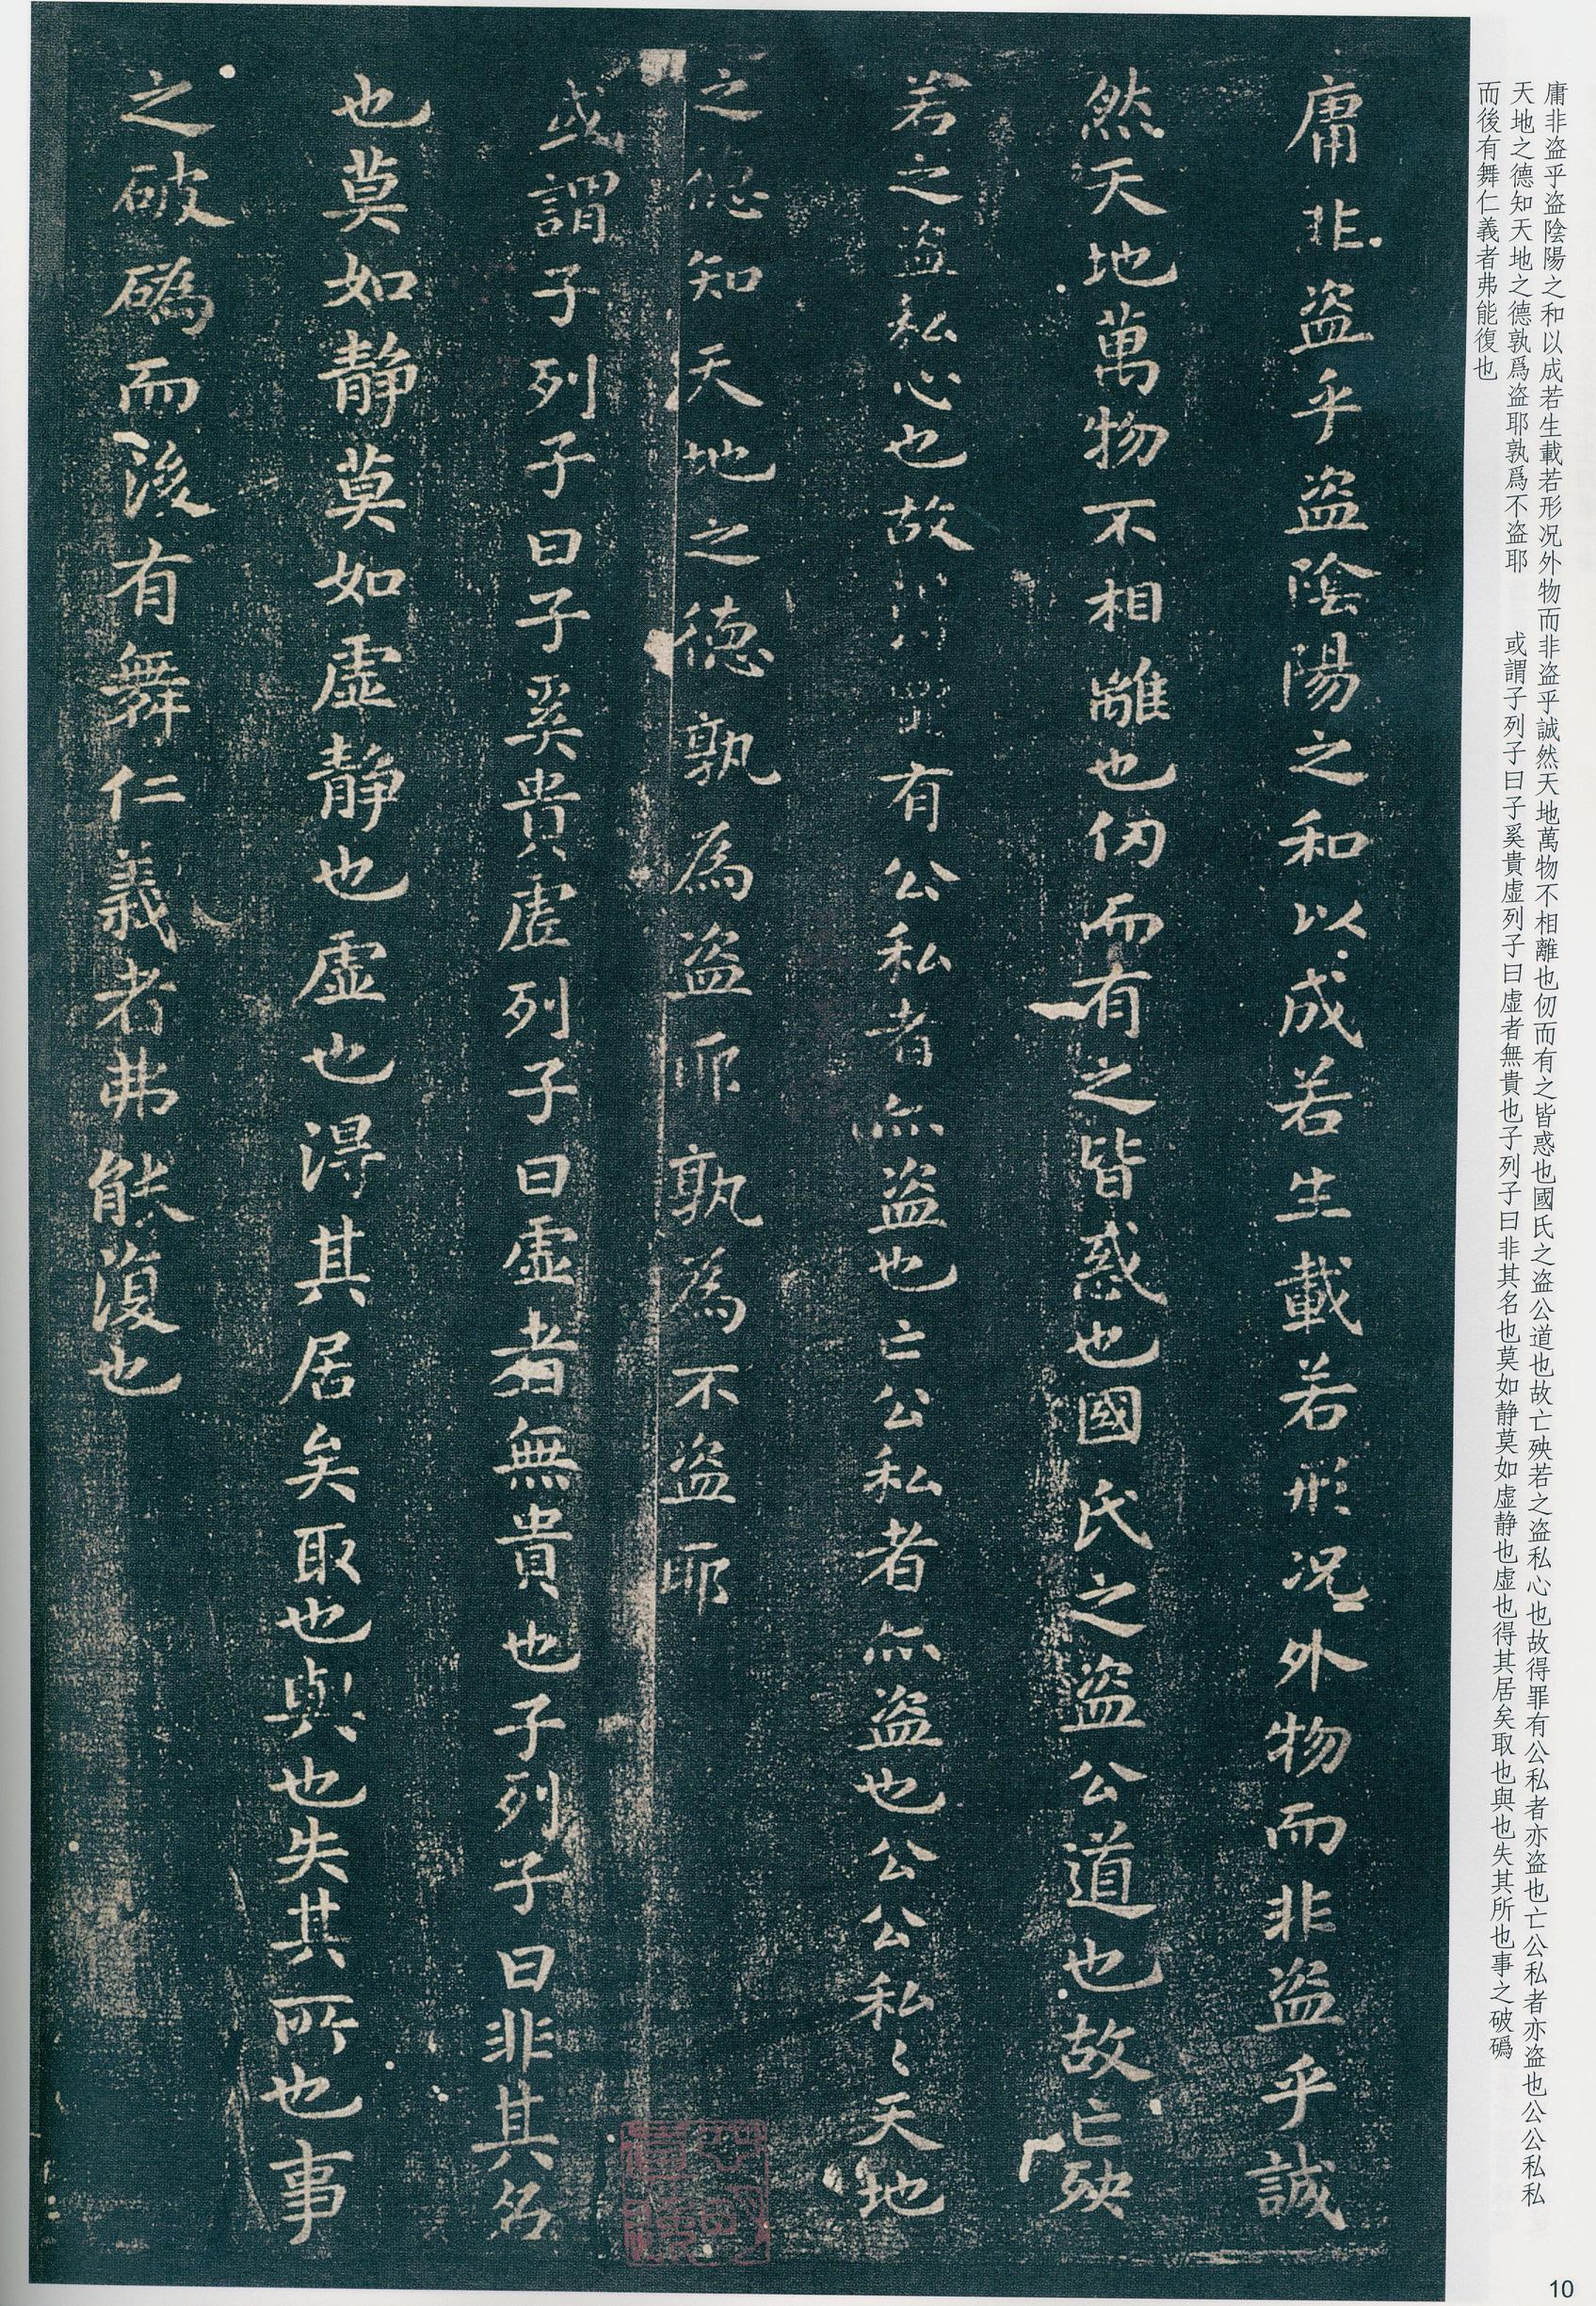 庸非盗乎盗陰陽之和以成若生載若形况外物而非盗乎誠然天地萬物不相離也仞而有之皆惑也國氏之盗公道也故亡殃若之盗私心也故得罪有公私者亦盗也亡公私者亦盗也公公私私
天地之德知天地之德孰爲盗耶孰爲不盗耶　或謂子列子曰子奚貴虚列子曰虚者無貴也子列子曰非其名也莫如静莫如虚静也虚也得其居矣取也與也失其所也事之破䃣
而後有舞仁義者弗能復也
庸非盗乎盗陰陽之和以成若生載若形况外物而非盗乎誠
然天地萬物不相離也仞而有之皆惑也國氏之盗公道也故亡殃
若之盗私心也故有公私者亦盗也亡公私者亦盗也公公私々天地
之德知天地之德孰為盗耶孰為不盗耶
或謂子列子曰子奚貴虚列子曰虚者無貴也子列子曰非其名
也莫如静莫如虚静也虚也得其居矣取也與也失其所也事
之破䃣而後有舞仁義者弗能復也
10